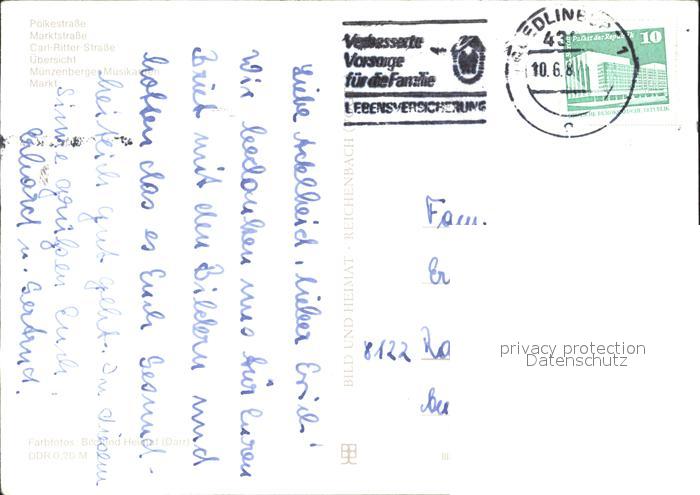 Pölkestraße
Marktstraße
Carl-Ritter-Straße
Übersicht
Münzenberger Musikanten
Markt
Verbesserte
Vorsorge
für die Familie
LEBENSVERSICHERUNG
QUEDLINBURG 1
43
10.6.8
c
Palast der Republik
10
DEUTSCHE DEMOKRATISCHE REPUBLIK
Liebe Adelheid, lieber Erich!
Wir bedanken uns für Euren
Brief mit den Bildern und
hoffen das es Euch Gesund-
heitlich gut geht. In diesem
Sinne grüßen Euch
Erhard u. Gertrud.
BILD UND HEIMAT · REICHENBACH
Fam.
Er
8122 Ra
privacy protection
Datenschutz
Farbfotos: Bild und Heimat (Darr)
DDR 0,20 M